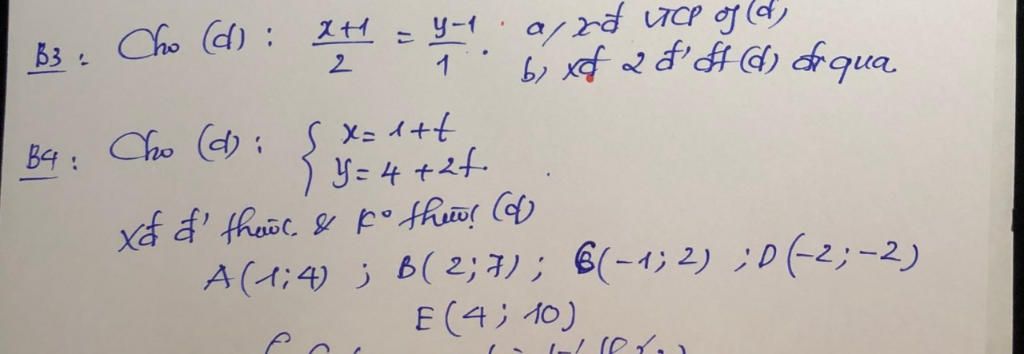 B3: Cho (d): \frac{x+1}{2} = \frac{y-1}{1}. a/ xđ VTCP of (d)
b) xđ 2 đ' đt (d) đi qua
B4: Cho (d): { x = 1+t
y = 4+2t.
xđ đ' thuộc & k° thuộc (d)
A(1;4) ; B(2;7) ; C(-1;2) ; D(-2;-2)
E(4;10)